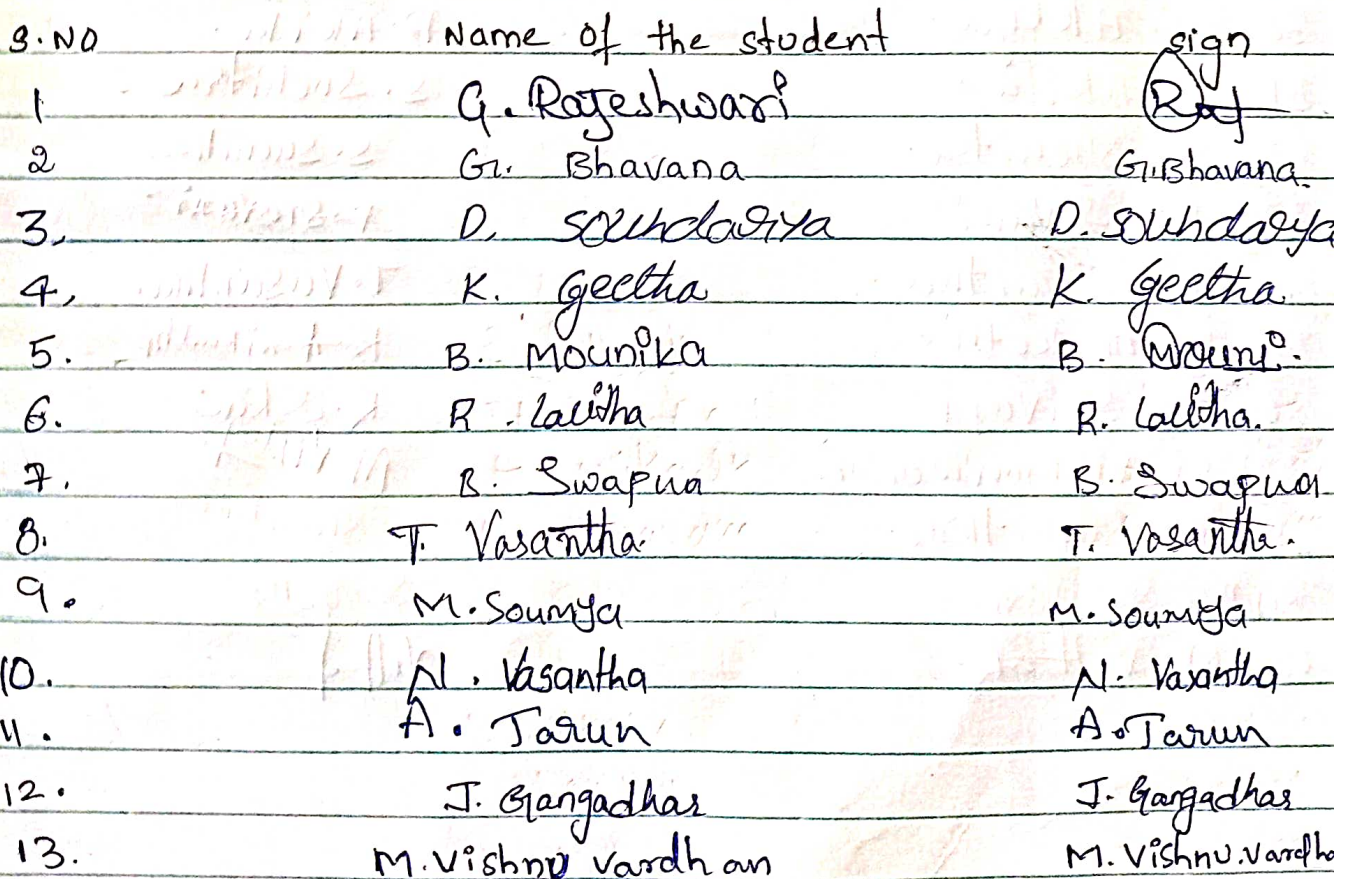 S.NO Name of the student sign
1 G. Rajeshwari Raj
2 G. Bhavana G.Bhavana.
3. D. Soundariya D. Soundarya
4. K. Geetha K. Geetha
5. B. Mounika B. Mouni.
6. R. Lalitha R. Lalitha.
7. B. Swapna B. Swapna
8. T. Vasantha. T. Vasantha.
9. M. Soumya M. Soumya
10. N. Vasantha N. Vasantha
11. A. Tarun A. Tarun
12. J. Gangadhar J. Gangadhar
13. M. Vishnu Vardhan M. Vishnu.Vardha